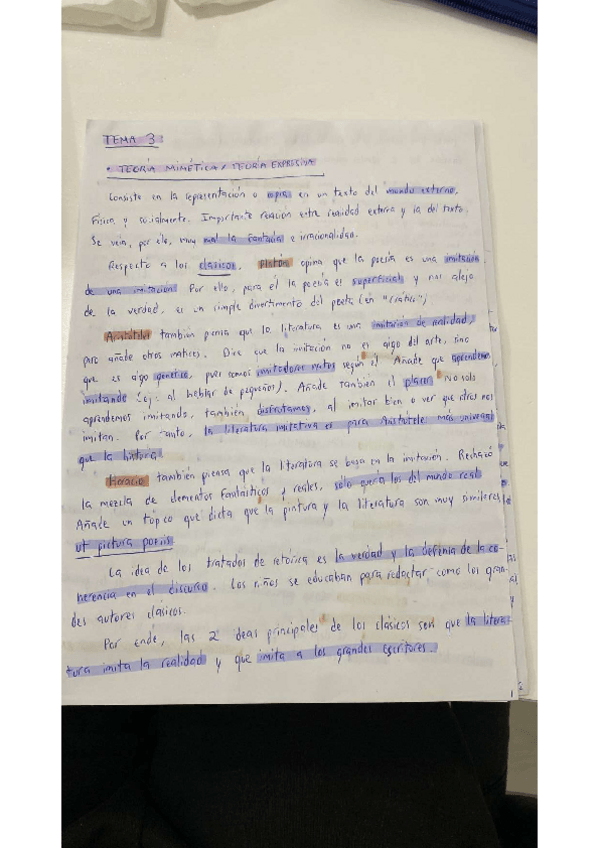 TEMA 3:
• TEORÍA MIMÉTICA / TEORÍA EXPRESIVA
Consiste en la representación o copia en un texto del mundo externo,
física y socialmente. Importante relación entre realidad externa y la del texto.
Se veía, por ello, muy mal la fantasía e irracionalidad.
Respecto a los clásicos, Platón opina que la poesía es una imitación
de una imitación. Por ello, para él la poesía es superficial y nos aleja
de la verdad, es un simple divertimento del poeta (en "Crátilo")
Aristóteles también piensa que la literatura es una imitación de realidad,
pero añade otros matices. Dice que la imitación no es algo del arte, sino
que es algo genético, pues somos imitadores natos según él. Añade que aprendemos
imitando (ej: al hablar de pequeños). Añade también el placer. No solo
aprendemos imitando, también disfrutamos, al imitar bien o ver que otros nos
imitan. Por tanto, la literatura imitativa es para Aristótele más universal
que la historia.
Horacio también piensa que la literatura se basa en la imitación. Rechazó
la mezcla de elementos fantásticos y reales, sólo quería los del mundo real
Añade un tópico que dicta que la pintura y la literatura son muy similares
ut pictura poeiis
La idea de los tratados de retórica es la verdad y la defensa de la co-
herencia en el discurso. Los niños se educaban para redactar como los gran-
des autores clásicos.
Por ende, las 2 ideas principales de los clásicos son que la litera-
tura imita la realidad y que imita a los grandes escritores.